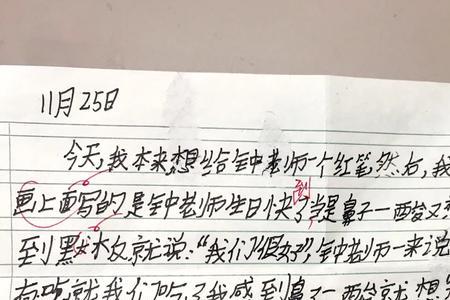 11月25日
今天,我本来想给钟老师一个红笔,然后,我
画上面写的是钟老师生日快了,当是鼻子一酸又想
到 就说:"我们很好",钟老师一来说
有吃就我们 了我感到鼻子一酸就想
到